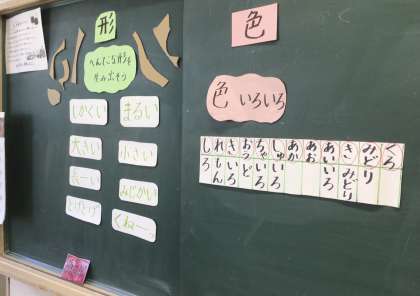 形
へんてこな形を
生みだそう
しかくい
まるい
大きい
小さい
長ーい
みじかい
とげとげ
くね〜
色
色 いろいろ
くろ
みどり
きみどり
あいいろ
あお
あか
しゅいろ
ちゃいろ
おうど
きいろ
れもん
しろ